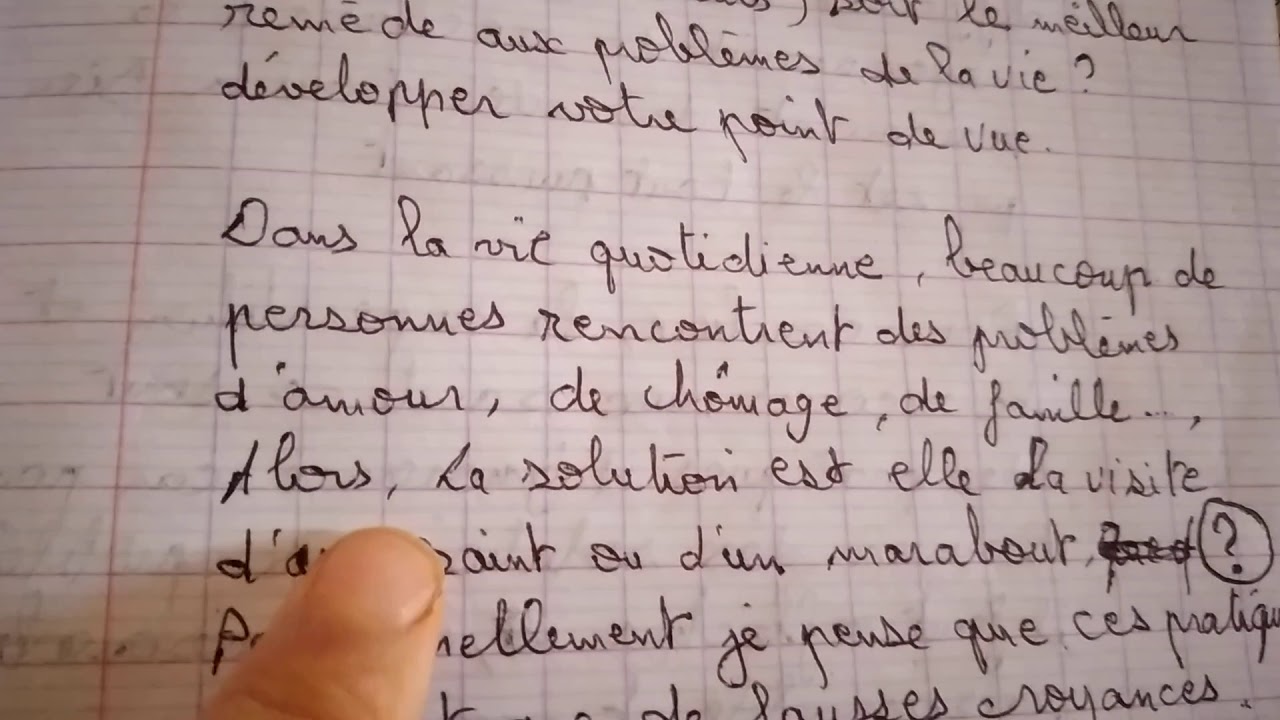 le meilleur
remède aux problèmes de la vie ?
développer votre point de vue.
Dans la vie quotidienne, beaucoup de
personnes rencontrent des problèmes
d'amour, de chômage, de famille...,
Alors, La solution est elle la visite
saint ou d'un marabout, ?
je pense que ces
de fausses croyances.